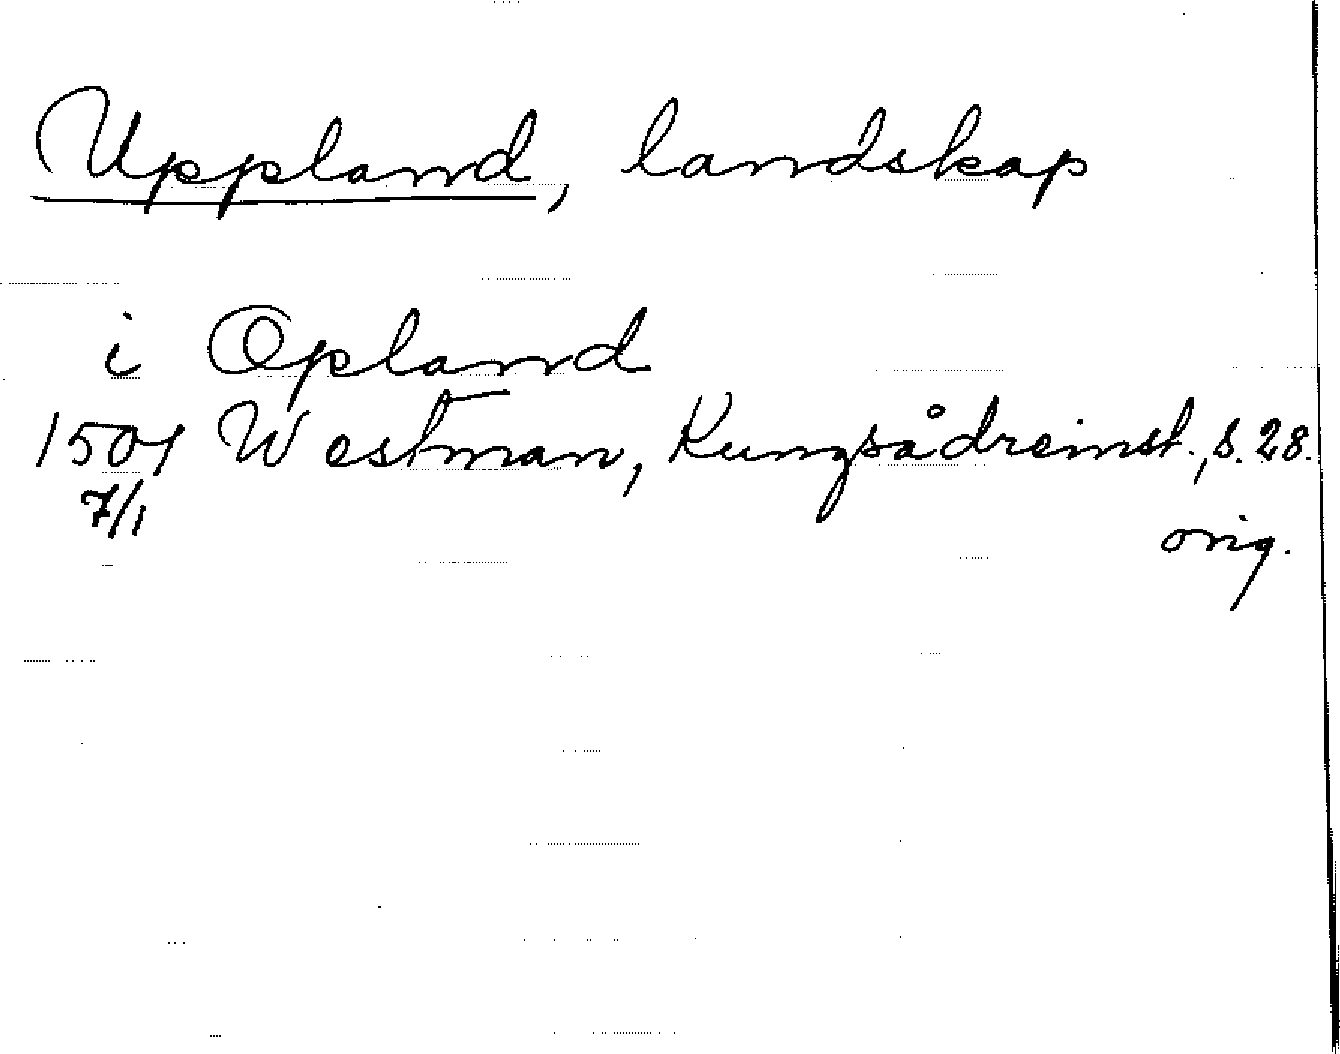 Uppland, landskap
i Opland
1501 Westman, Kungsådreinst., s. 28.
7/1
orig.